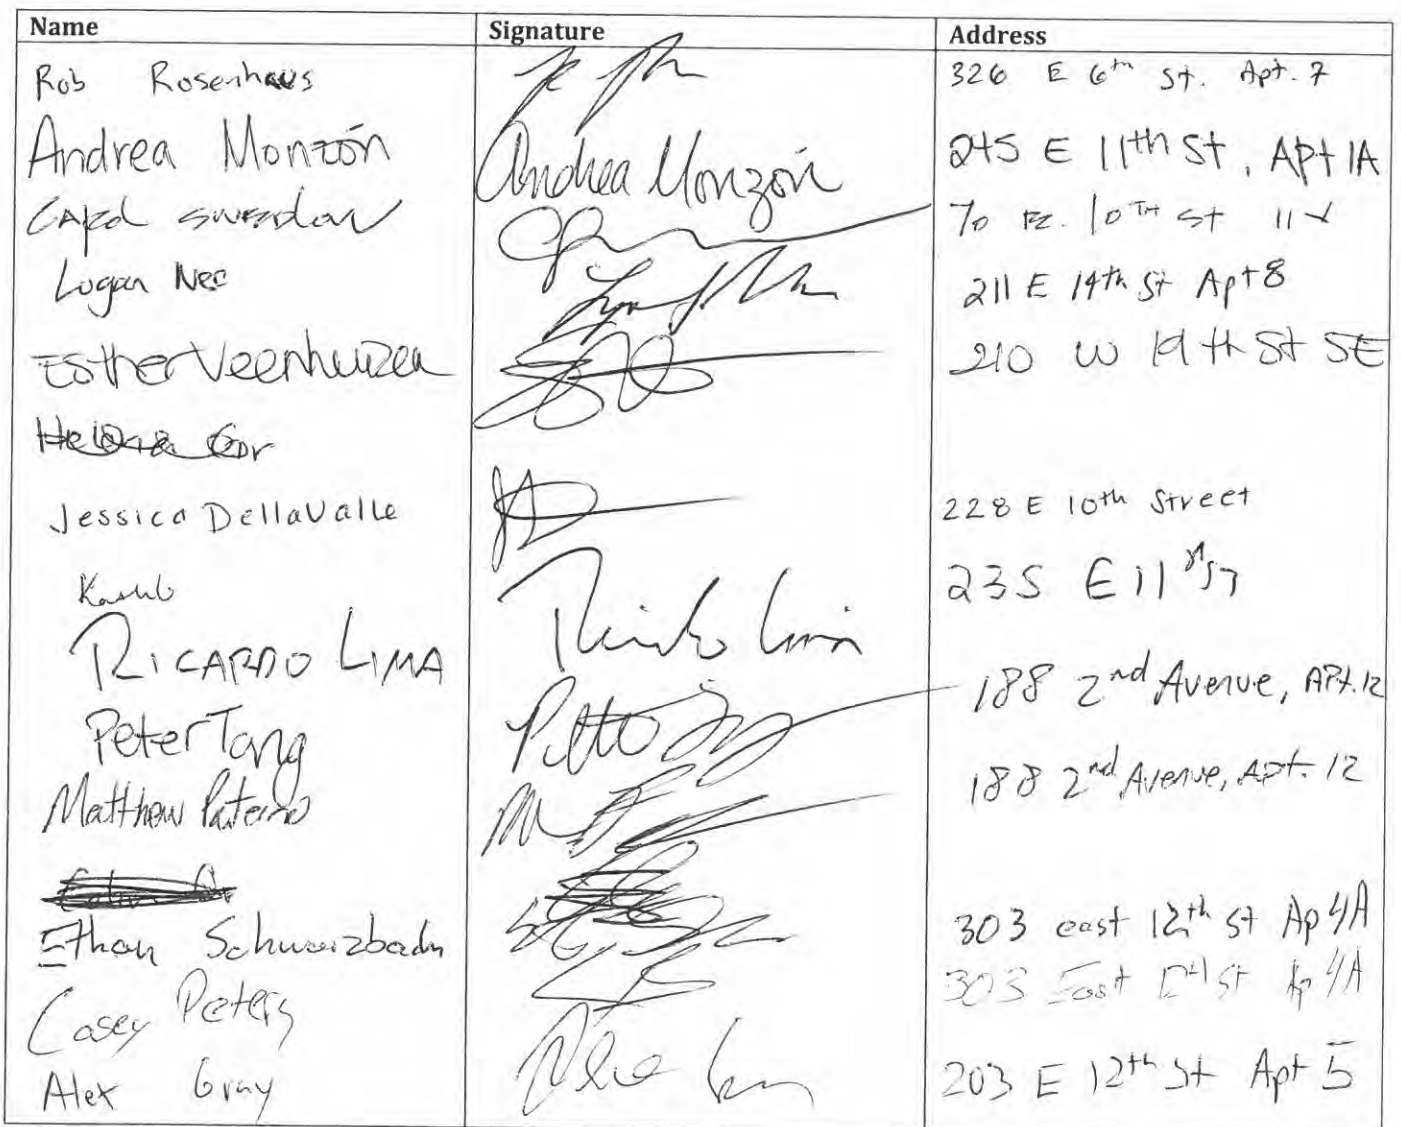 Name Signature Address
Rob Rosenhaus 326 E 6th St. Apt. 7
Andrea Monzón Andrea Monzón 245 E 11th St, Apt 1A
70 E. 10TH St
Logan Nee 211 E 14th St Apt 8
Esther Veenhuizen 210 W 19th St 5E
Jessica DellaValle 228 E 10th Street
235 E 11 ST
RICARDO LIMA Ricardo Lima
188 2nd Avenue, APt. 12
Peter Tang
188 2nd Avenue, Apt. 12
Matthew Paterno
Ethan 303 east 12th St Ap 4A
Casey Peters 303 East 12th St Ap 4A
Alex Gray 203 E 12th St Apt 5